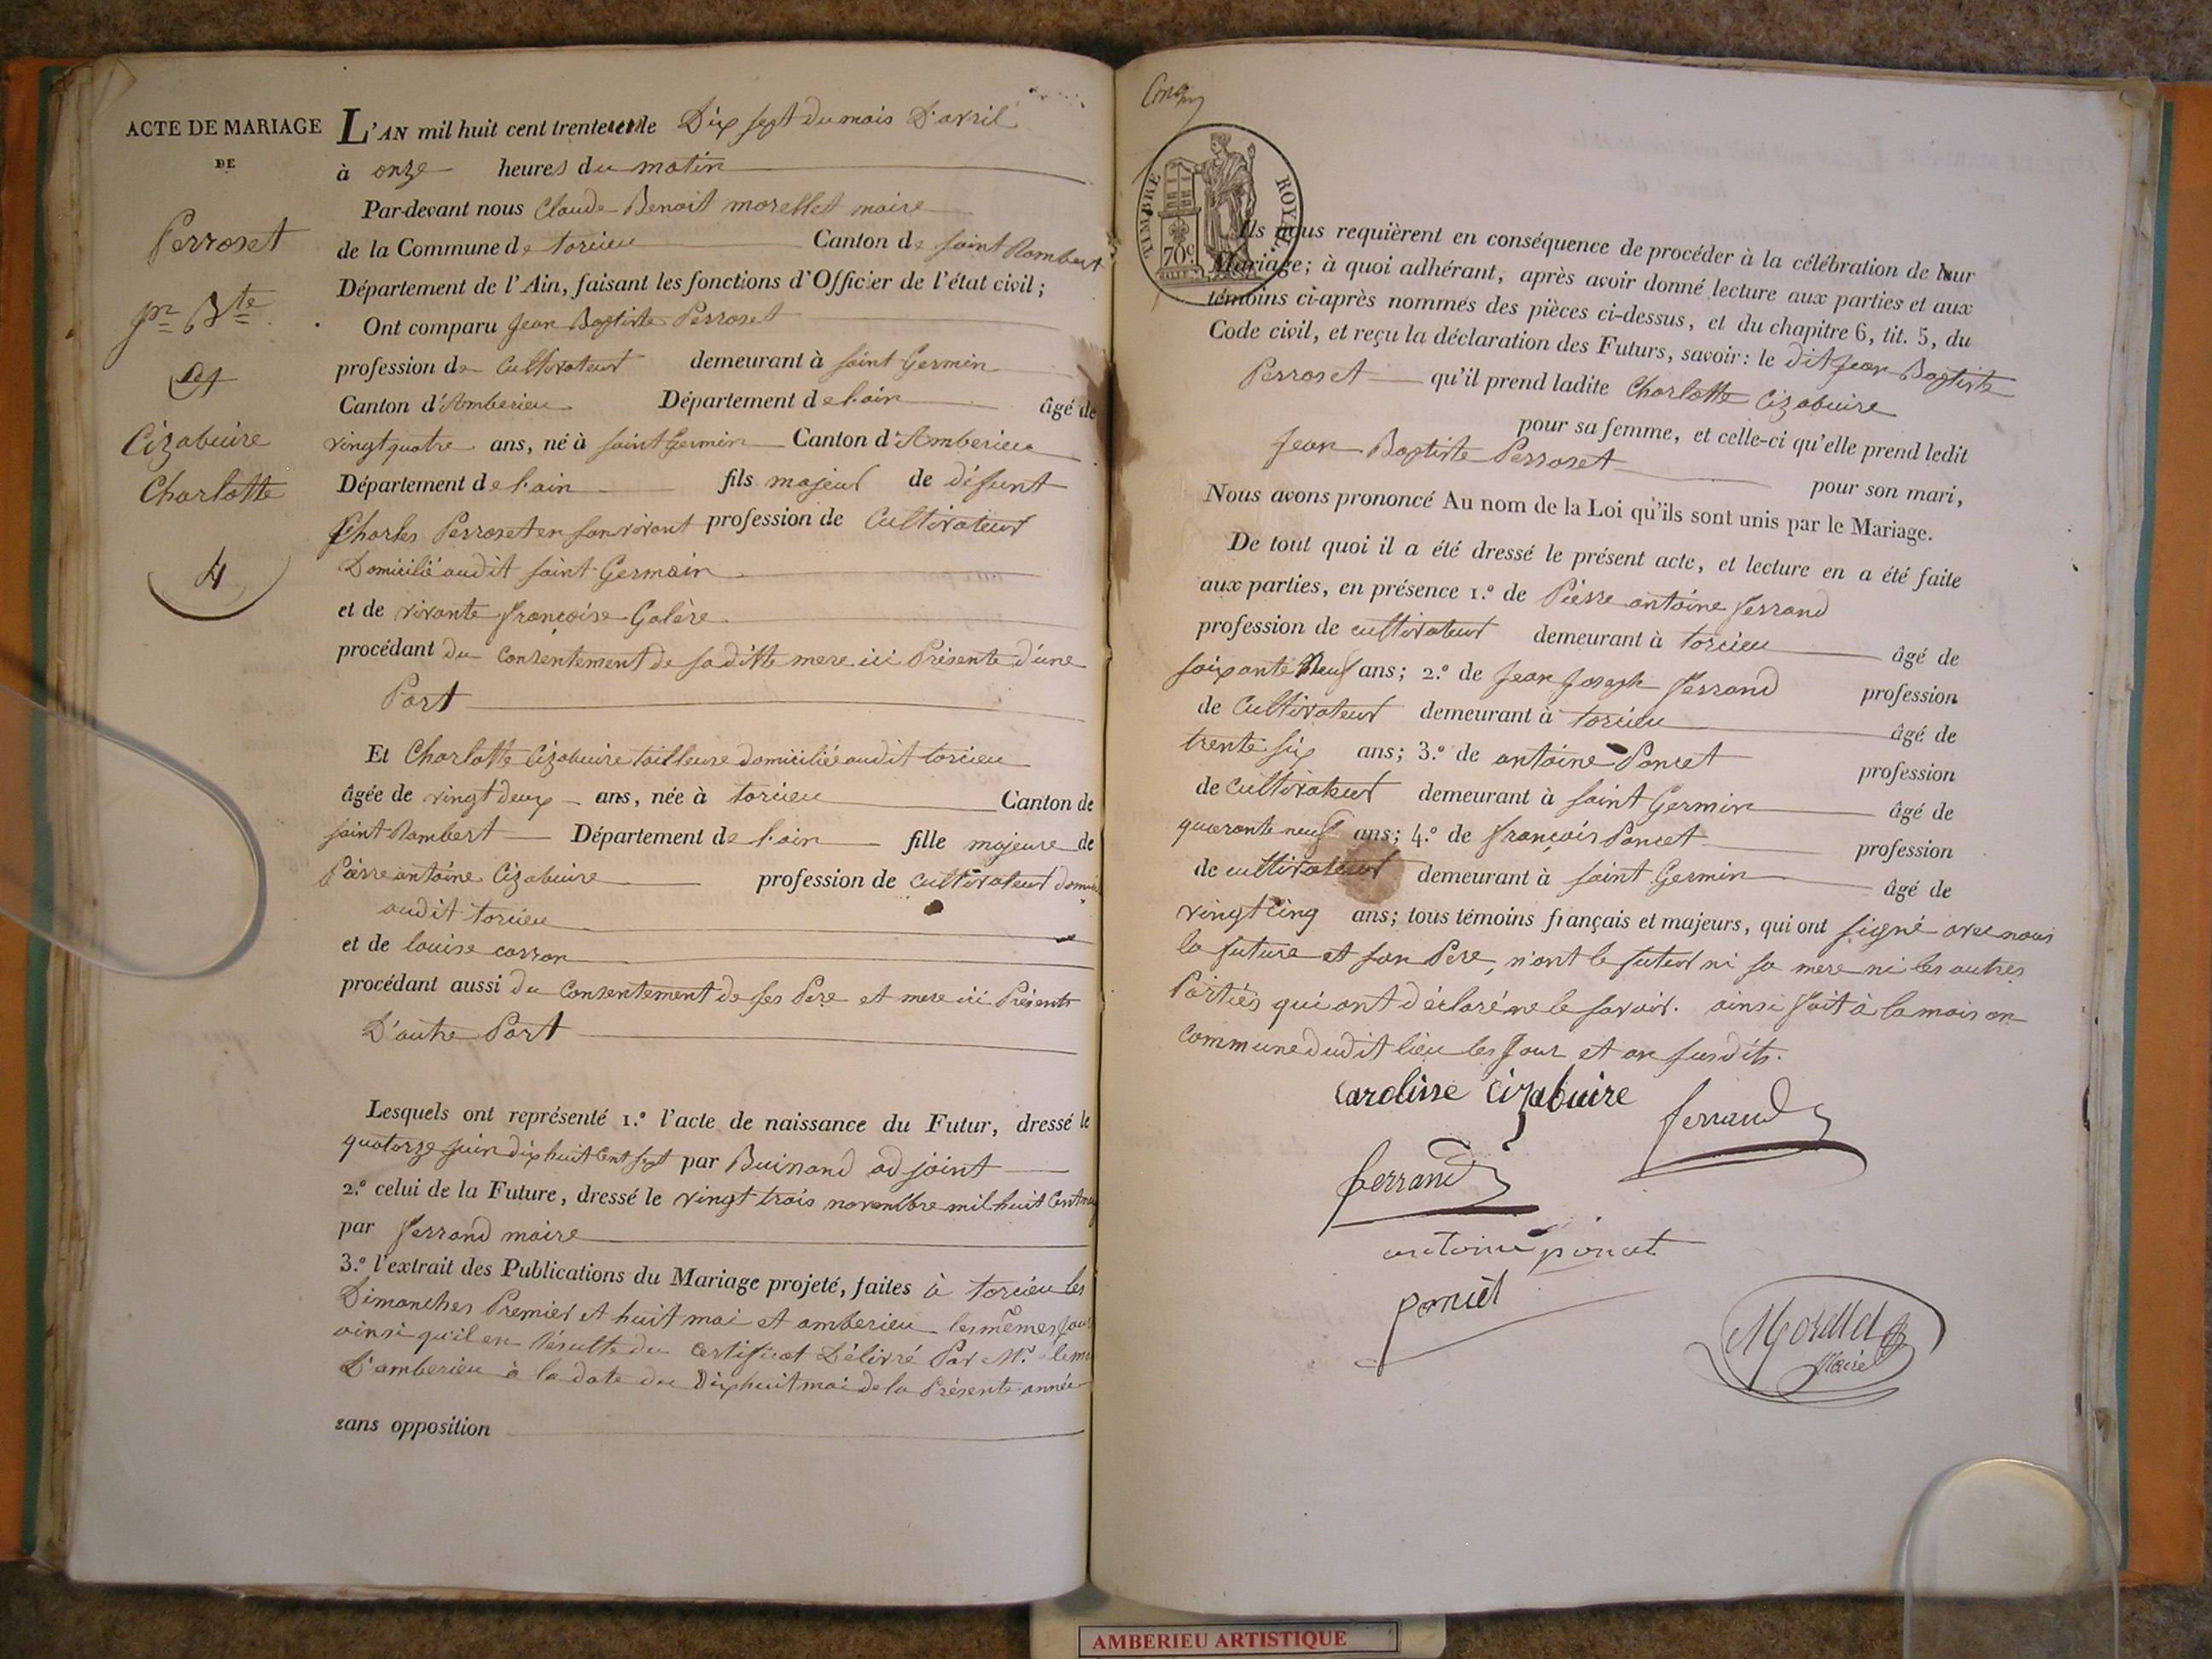 ACTE DE MARIAGE
DE
Perroset
jn Bte
et
Cizabuire
Charlotte
4
L'AN mil huit cent trente Dix sept du mois D'avril
à onze heures du matin
Par-devant nous Claude Benoit morellet maire
de la Commune de torcieu Canton de saint Rambert
Département de l'Ain, faisant les fonctions d'Officier de l'état civil;
Ont comparu Jean Baptiste Perroset
profession de Cultivateur demeurant à saint Germin
Canton d'Amberieu Département de l'ain âgé de
vingt quatre ans, né à saint Germin Canton d'Amberieu
Département de l'ain fils majeur de défunt
Charles Perroset en son vivant profession de Cultivateur
Domicilié audit saint Germain
et de vivante françoise Galère
procédant du Consentement de saditte mere ici Présente d'une
Part
Et Charlotte Cizabuire tailleuse domiciliée audit torcieu
âgée de vingt deux ans, née à torcieu Canton de
saint Rambert Département de l'ain fille majeure de
Pierre antoine Cizabuire profession de Cultivateur
audit torcieu
et de louise carron
procédant aussi du Consentement de ses Pere et mere ici Présents
D'autre Part
Lesquels ont représenté 1.º l'acte de naissance du Futur, dressé le
quatorze juin dix huit Cent sept par Buinand adjoint
2.º celui de la Future, dressé le vingt trois novembre mil huit Cent
par ferrand maire
3.º l'extrait des Publications du Mariage projeté, faites à torcieu les
Dimanches Premier et huit mai et amberieu les mêmes jours
ainsi qu'il en Résulte du Certificat Délivré Par Mr. le
D'amberieu à la date du Dix huit mai de la Présente année
sans opposition
TIMBRE ROYAL
70c.
Ils nous requièrent en conséquence de procéder à la célébration de leur
Mariage; à quoi adhérant, après avoir donné lecture aux parties et aux
témoins ci-après nommés des pièces ci-dessus, et du chapitre 6, tit. 5, du
Code civil, et reçu la déclaration des Futurs, savoir: le dit Jean Baptiste
Perroset qu'il prend ladite Charlotte Cizabuire
pour sa femme, et celle-ci qu'elle prend ledit
Jean Baptiste Perroset pour son mari,
Nous avons prononcé Au nom de la Loi qu'ils sont unis par le Mariage.
De tout quoi il a été dressé le présent acte, et lecture en a été faite
aux parties, en présence 1.º de Pierre antoine ferrand
profession de cultivateur demeurant à torcieu âgé de
soixante Neuf ans; 2.º de Jean Joseph ferrand profession
de Cultivateur demeurant à torcieu âgé de
trente six ans; 3.º de antoine Poncet profession
de Cultivateur demeurant à saint Germin âgé de
quarante neuf ans; 4.º de françois Poncet profession
de cultivateur demeurant à saint Germin âgé de
vingt Cinq ans; tous témoins français et majeurs, qui ont signé avec nous
la future et son Pere, n'ont le futur ni sa mere ni les autres
Parties qui ont déclaré ne le savoir. ainsi fait à la maison
Commune dudit lieu les Jour et an susdits.
Carolisse Cizabuire
ferrand
ferrand
antoine poncet
poncet
Morellet
Maire
AMBERIEU ARTISTIQUE